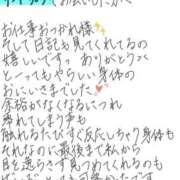 お仕事おつかれ様✨
そして日記も見てくれてるの
嬉しいですっ ありがとうっ
とーってもやらしい身体の
おにいさまでした♡
余裕がなくなるにつれ
暴れてしまう事も
触れるたびすぐ反応しちゃう身体も
それなのに最後まで私から
目を逸らさず見つめてくれるのも